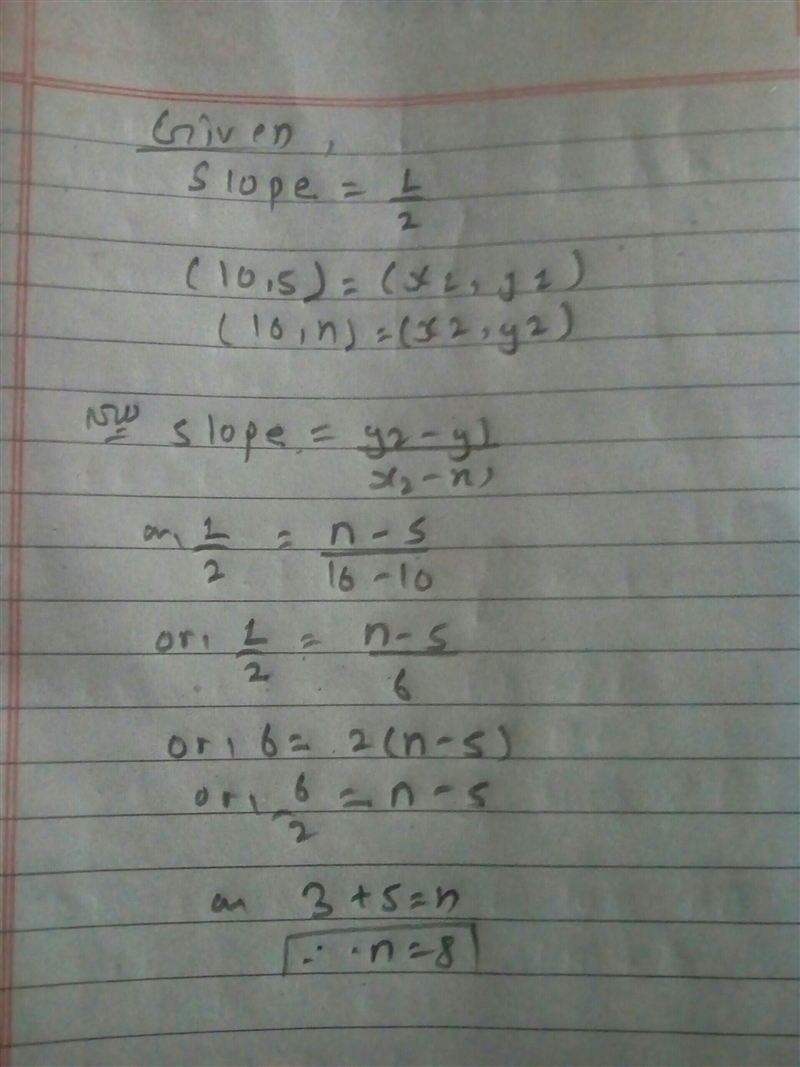 Given,
Slope = 1/2
(10,5) = (x1, y1)
(16,n) = (x2, y2)
Now slope = y2 - y1 / x2 - x1
or, 1/2 = n - 5 / 16 - 10
or, 1/2 = n - 5 / 6
or, 6 = 2(n - 5)
or, 6/2 = n - 5
or 3 + 5 = n
∴ n = 8